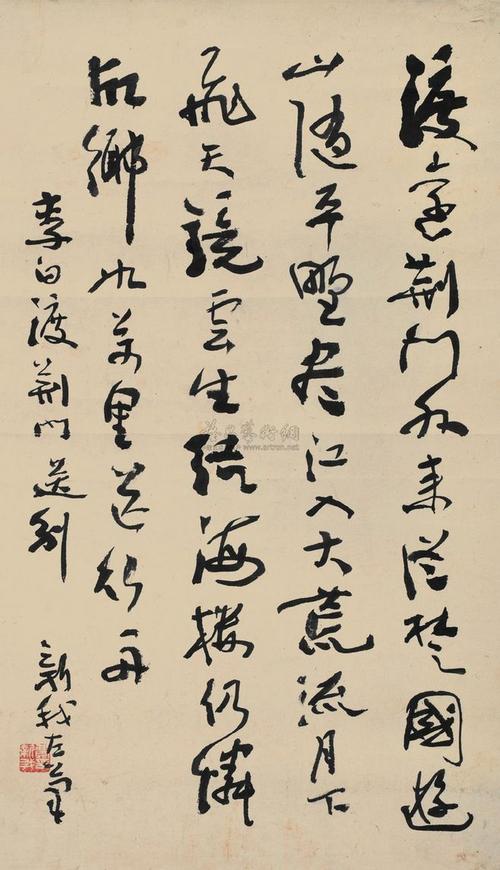 渡遠荊門外來從楚國遊
山隨平野尽江入大荒流月下
飛天鏡雲生結海樓仍憐
故鄉水萬里送行舟
李白渡荊門送別
新我左筆
www.artron.net